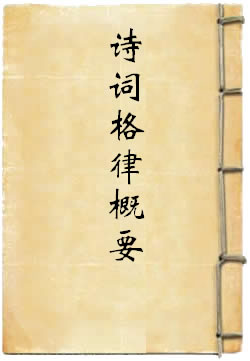 诗词格律概要